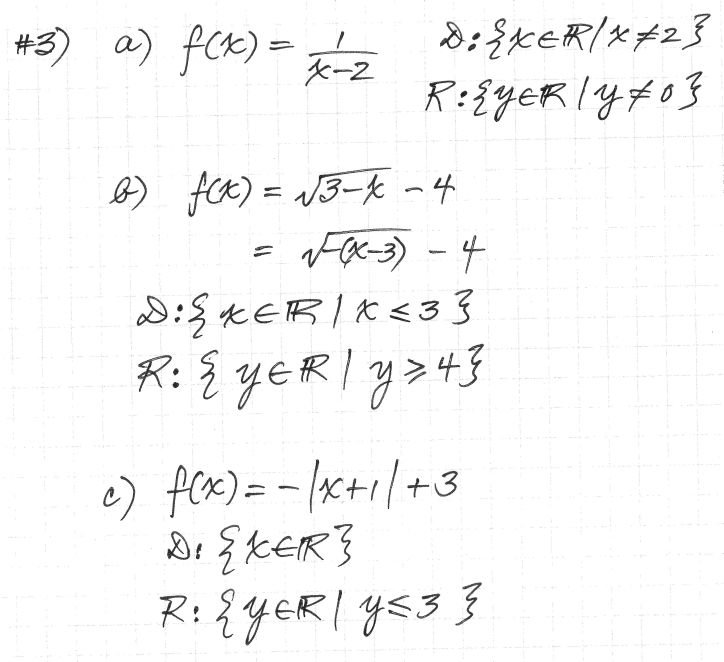 #3) a) f(x) = 1/(x-2) D:{x∈ℝ|x≠2}
R:{y∈ℝ|y≠0}
b) f(x) = √(3-x) - 4
= √(-(x-3)) - 4
D:{x∈ℝ|x≤3}
R:{y∈ℝ|y≥4}
c) f(x) = -|x+1|+3
D:{x∈ℝ}
R:{y∈ℝ|y≤3}